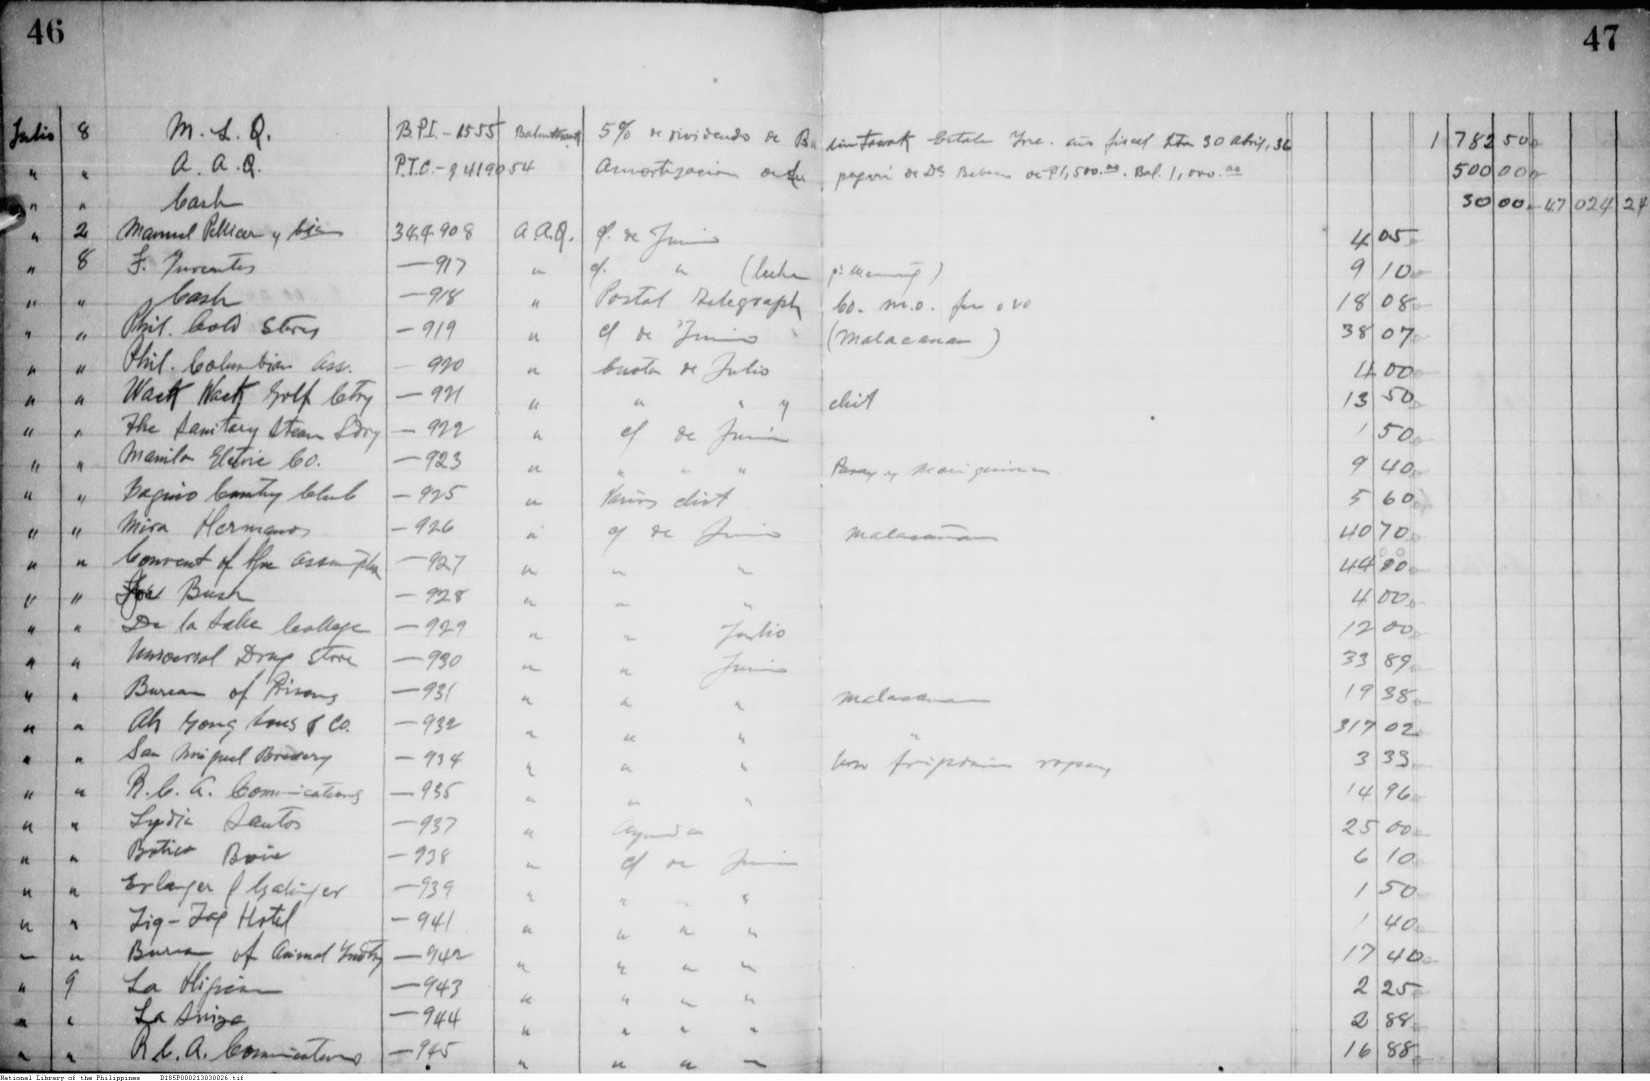 46
47
Julio 8 M. L. Q. B.P.I.-1555 5% de dividendo de Balintawak Estate Inc. año fiscal 30 Abril, 36 1 782 50
" " A. A. Q. P.T.C.- 419054 Amortizacion pagaré de P1,500.00. Bal. 1,000.00 500 00
" " Cash 30 00 47 024 24
" 2 Manuel Pellicer y 344908 A.A.Q. c/ de Junio 4 05
" 8 F. —917 " c/. " (leche ) 9 10
" " Cash —918 " Postal Telegraph Co. m.o. 18 08
" " Phil. Cold Stores —919 " c/ de Junio (Malacañan) 38 07
" " Phil. Columbian Ass. — 920 " Cuota de Julio 4 00
" " Wack Wack Golf Ctry —921 " " " y chit 13 50
" " The Sanitary Steam Ldry —922 " c/ de Junio 1 50
" " Manila Electric Co. —923 " " " " Pasay y Mariquina 9 40
" " Baguio Country Club —925 " Varios chit 5 60
" " Mira Hermanos —926 " c/ de Junio Malacañan 40 70
" " Convent of the Assumption —927 " " " 44 00
" " Joe Bush —928 " " " 4 00
" " De la Salle College —929 " " Julio 12 00
" " Universal Drug Store —930 " " Junio 33 89
" " Bureau of Prisons —931 " " " Malacañan 19 38
" " Ah Gong Sons & Co. —932 " " " " 317 02
" " San Miguel Brewery —934 " " " 3 33
" " R.C.A. Communications —935 " " " 14 96
" " Lydia Santos —937 " Ayuda 25 00
" " Botica Boie —938 " c/ de Junio 6 10
" " Erlanger & Galinger —939 " " " " 1 50
" " Zig-Zag Hotel —941 " " " " 1 40
" " Bureau of Animal Indtry —942 " " " " 17 40
" 9 La —943 " " " " 2 25
" " La Suiza —944 " " " " 2 88
" " R.C.A. Communications —945 " " " " 16 88
National Library of the Philippines D185P000213030026.tif